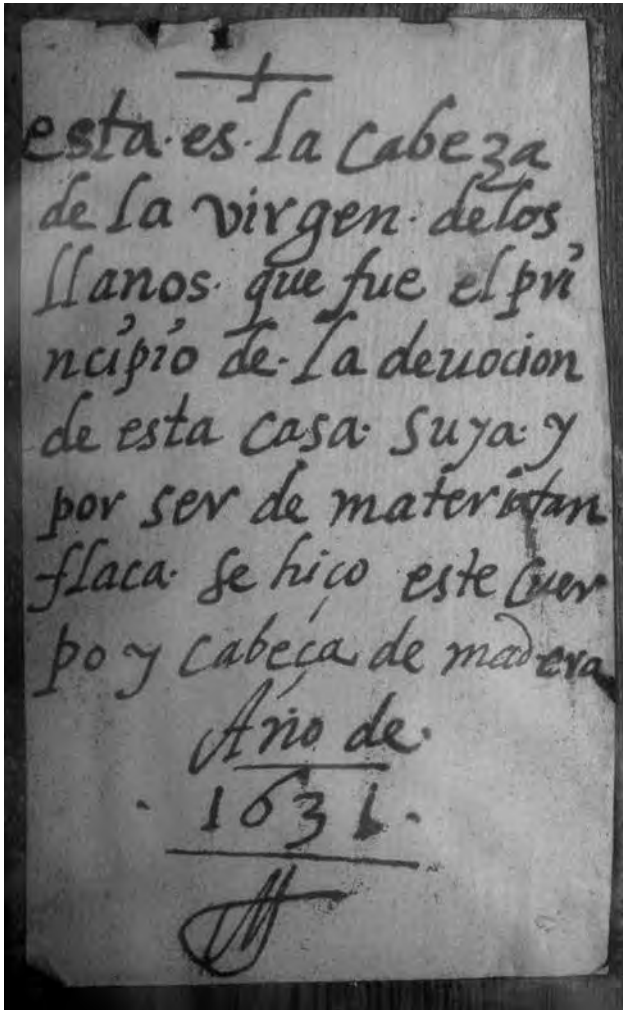 esta·es·la cabeza
de la virgen·delos
llanos·que fue el pri
ncipio de·la deuocion
de esta casa·suya·y
por ser de materia tan
flaca·se hico este cuer
po y cabeça de madera
Año de·
·1631·